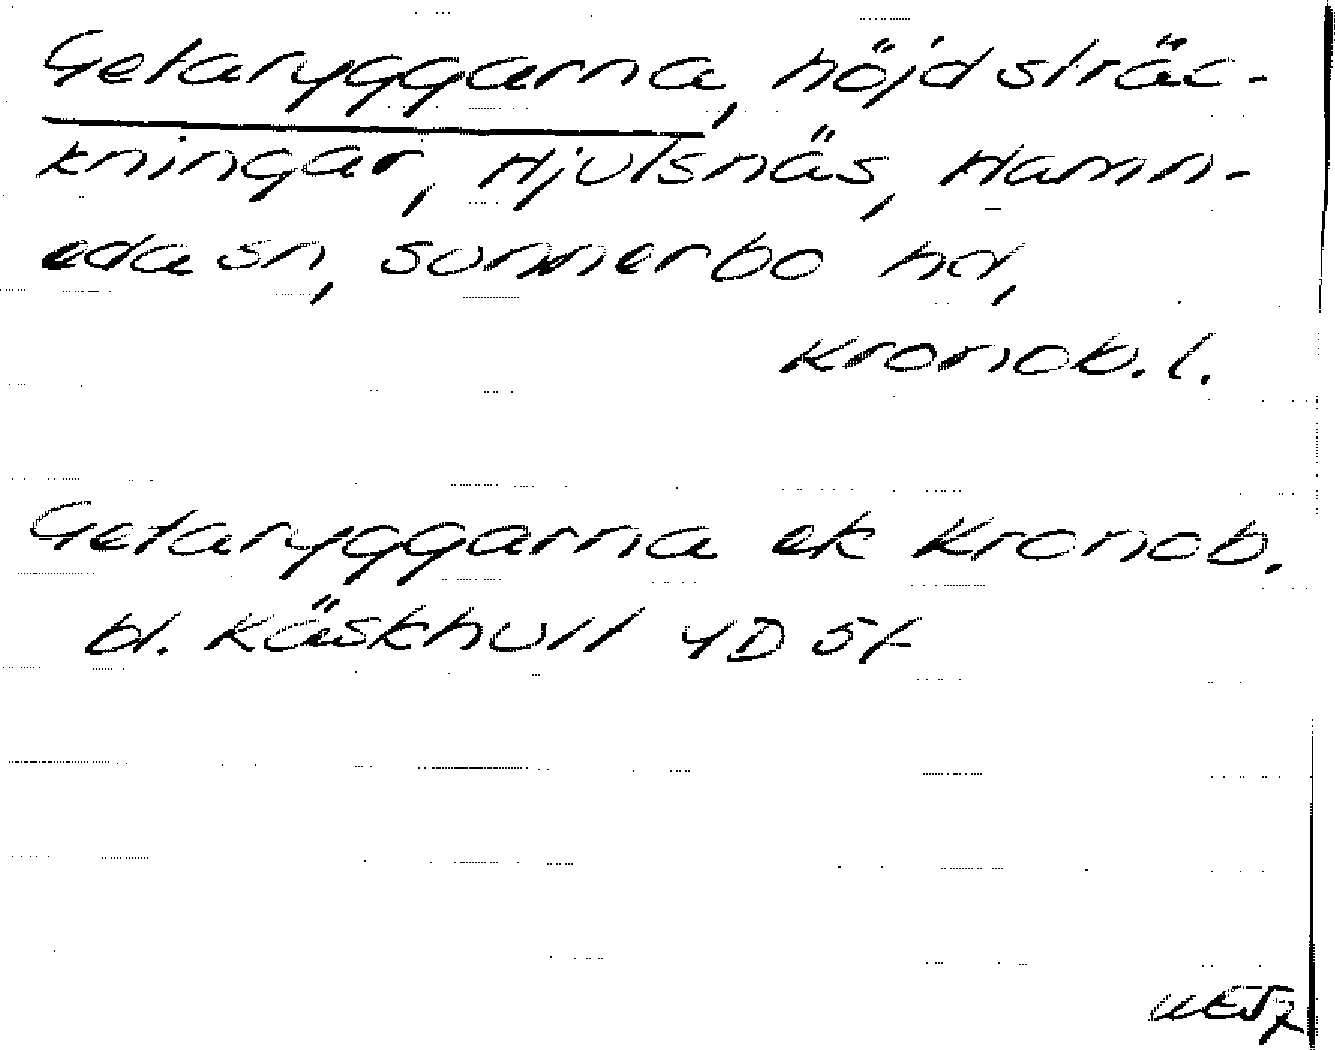 Getaryggarna, höjdsträc-
kningar, Hjulsnäs, Hamn-
eda sn, Sunnerbo hd,
Kronob. l.
Getaryggarna ek Kronob.
bl. Käskhult 4D 5f